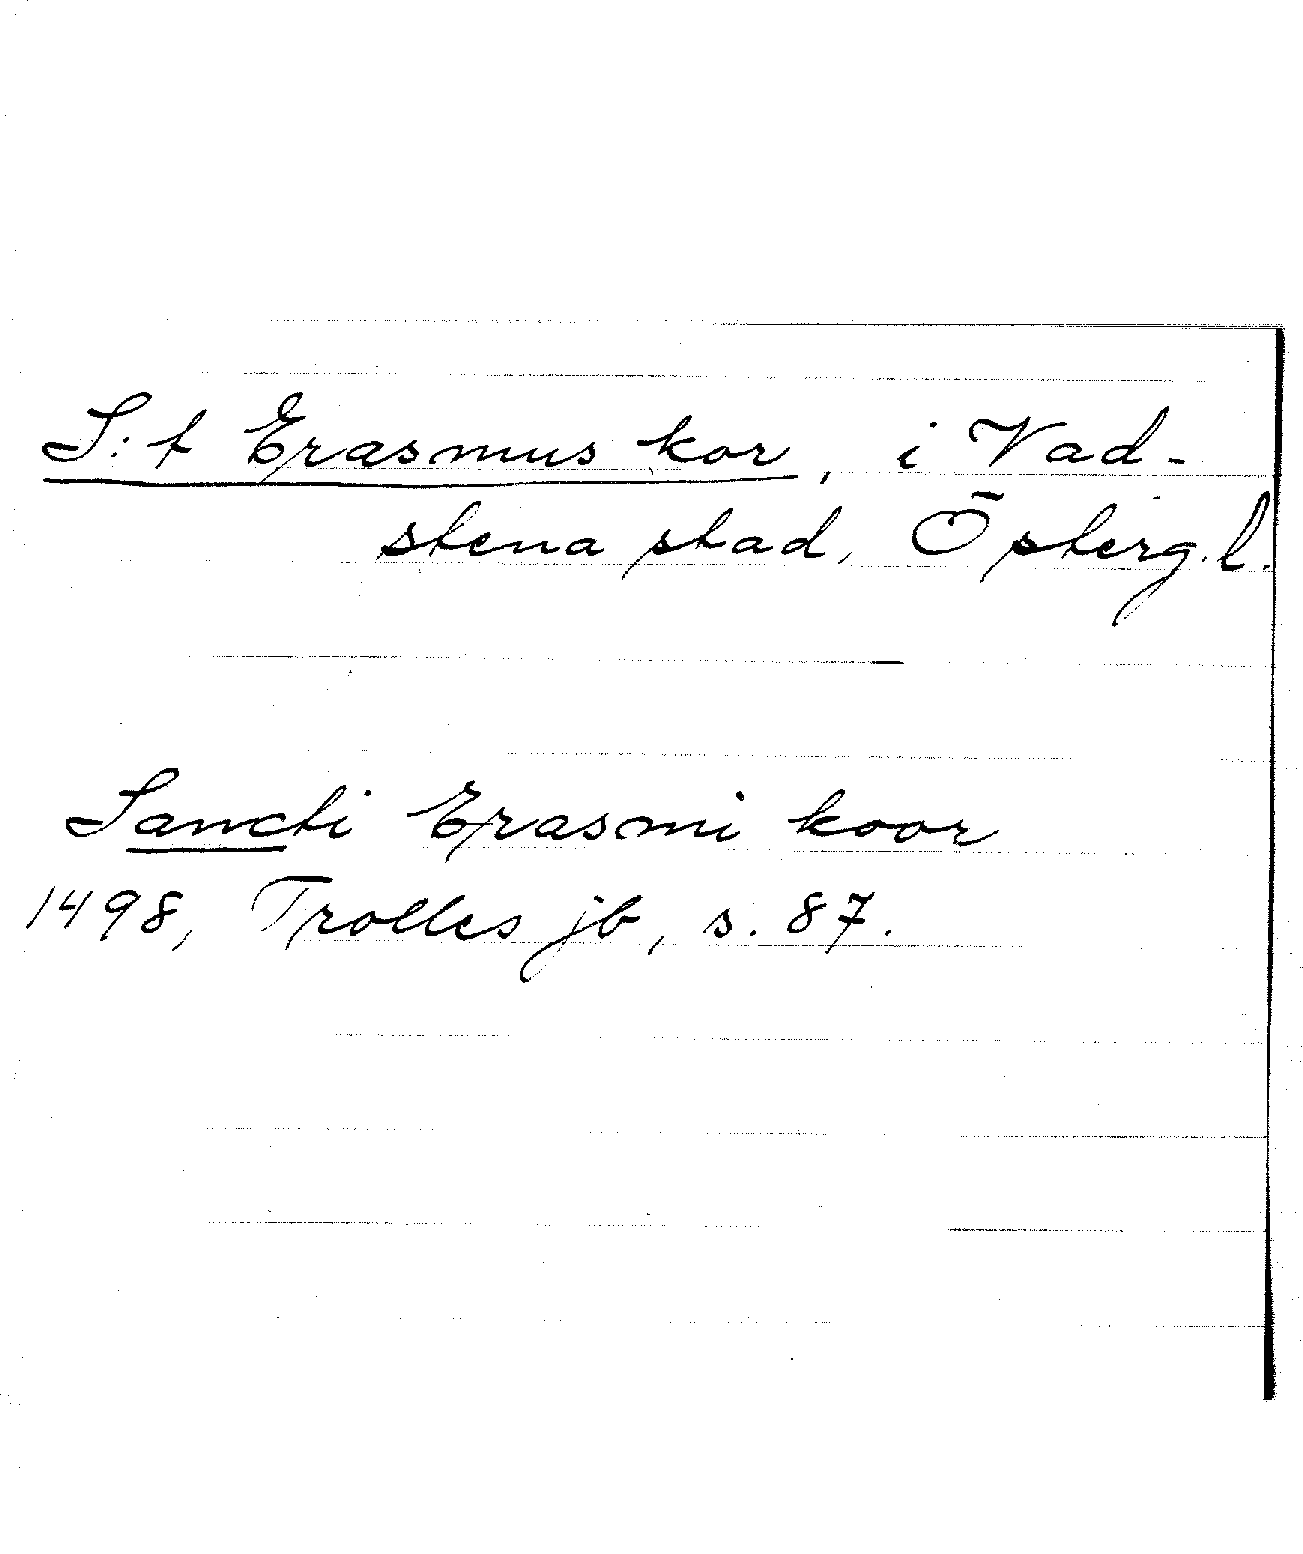 S:t Erasmus kor, i Vad-
stena stad, Österg. l.
Sancti Erasmi koor
1498, Trolles jb, s. 87.